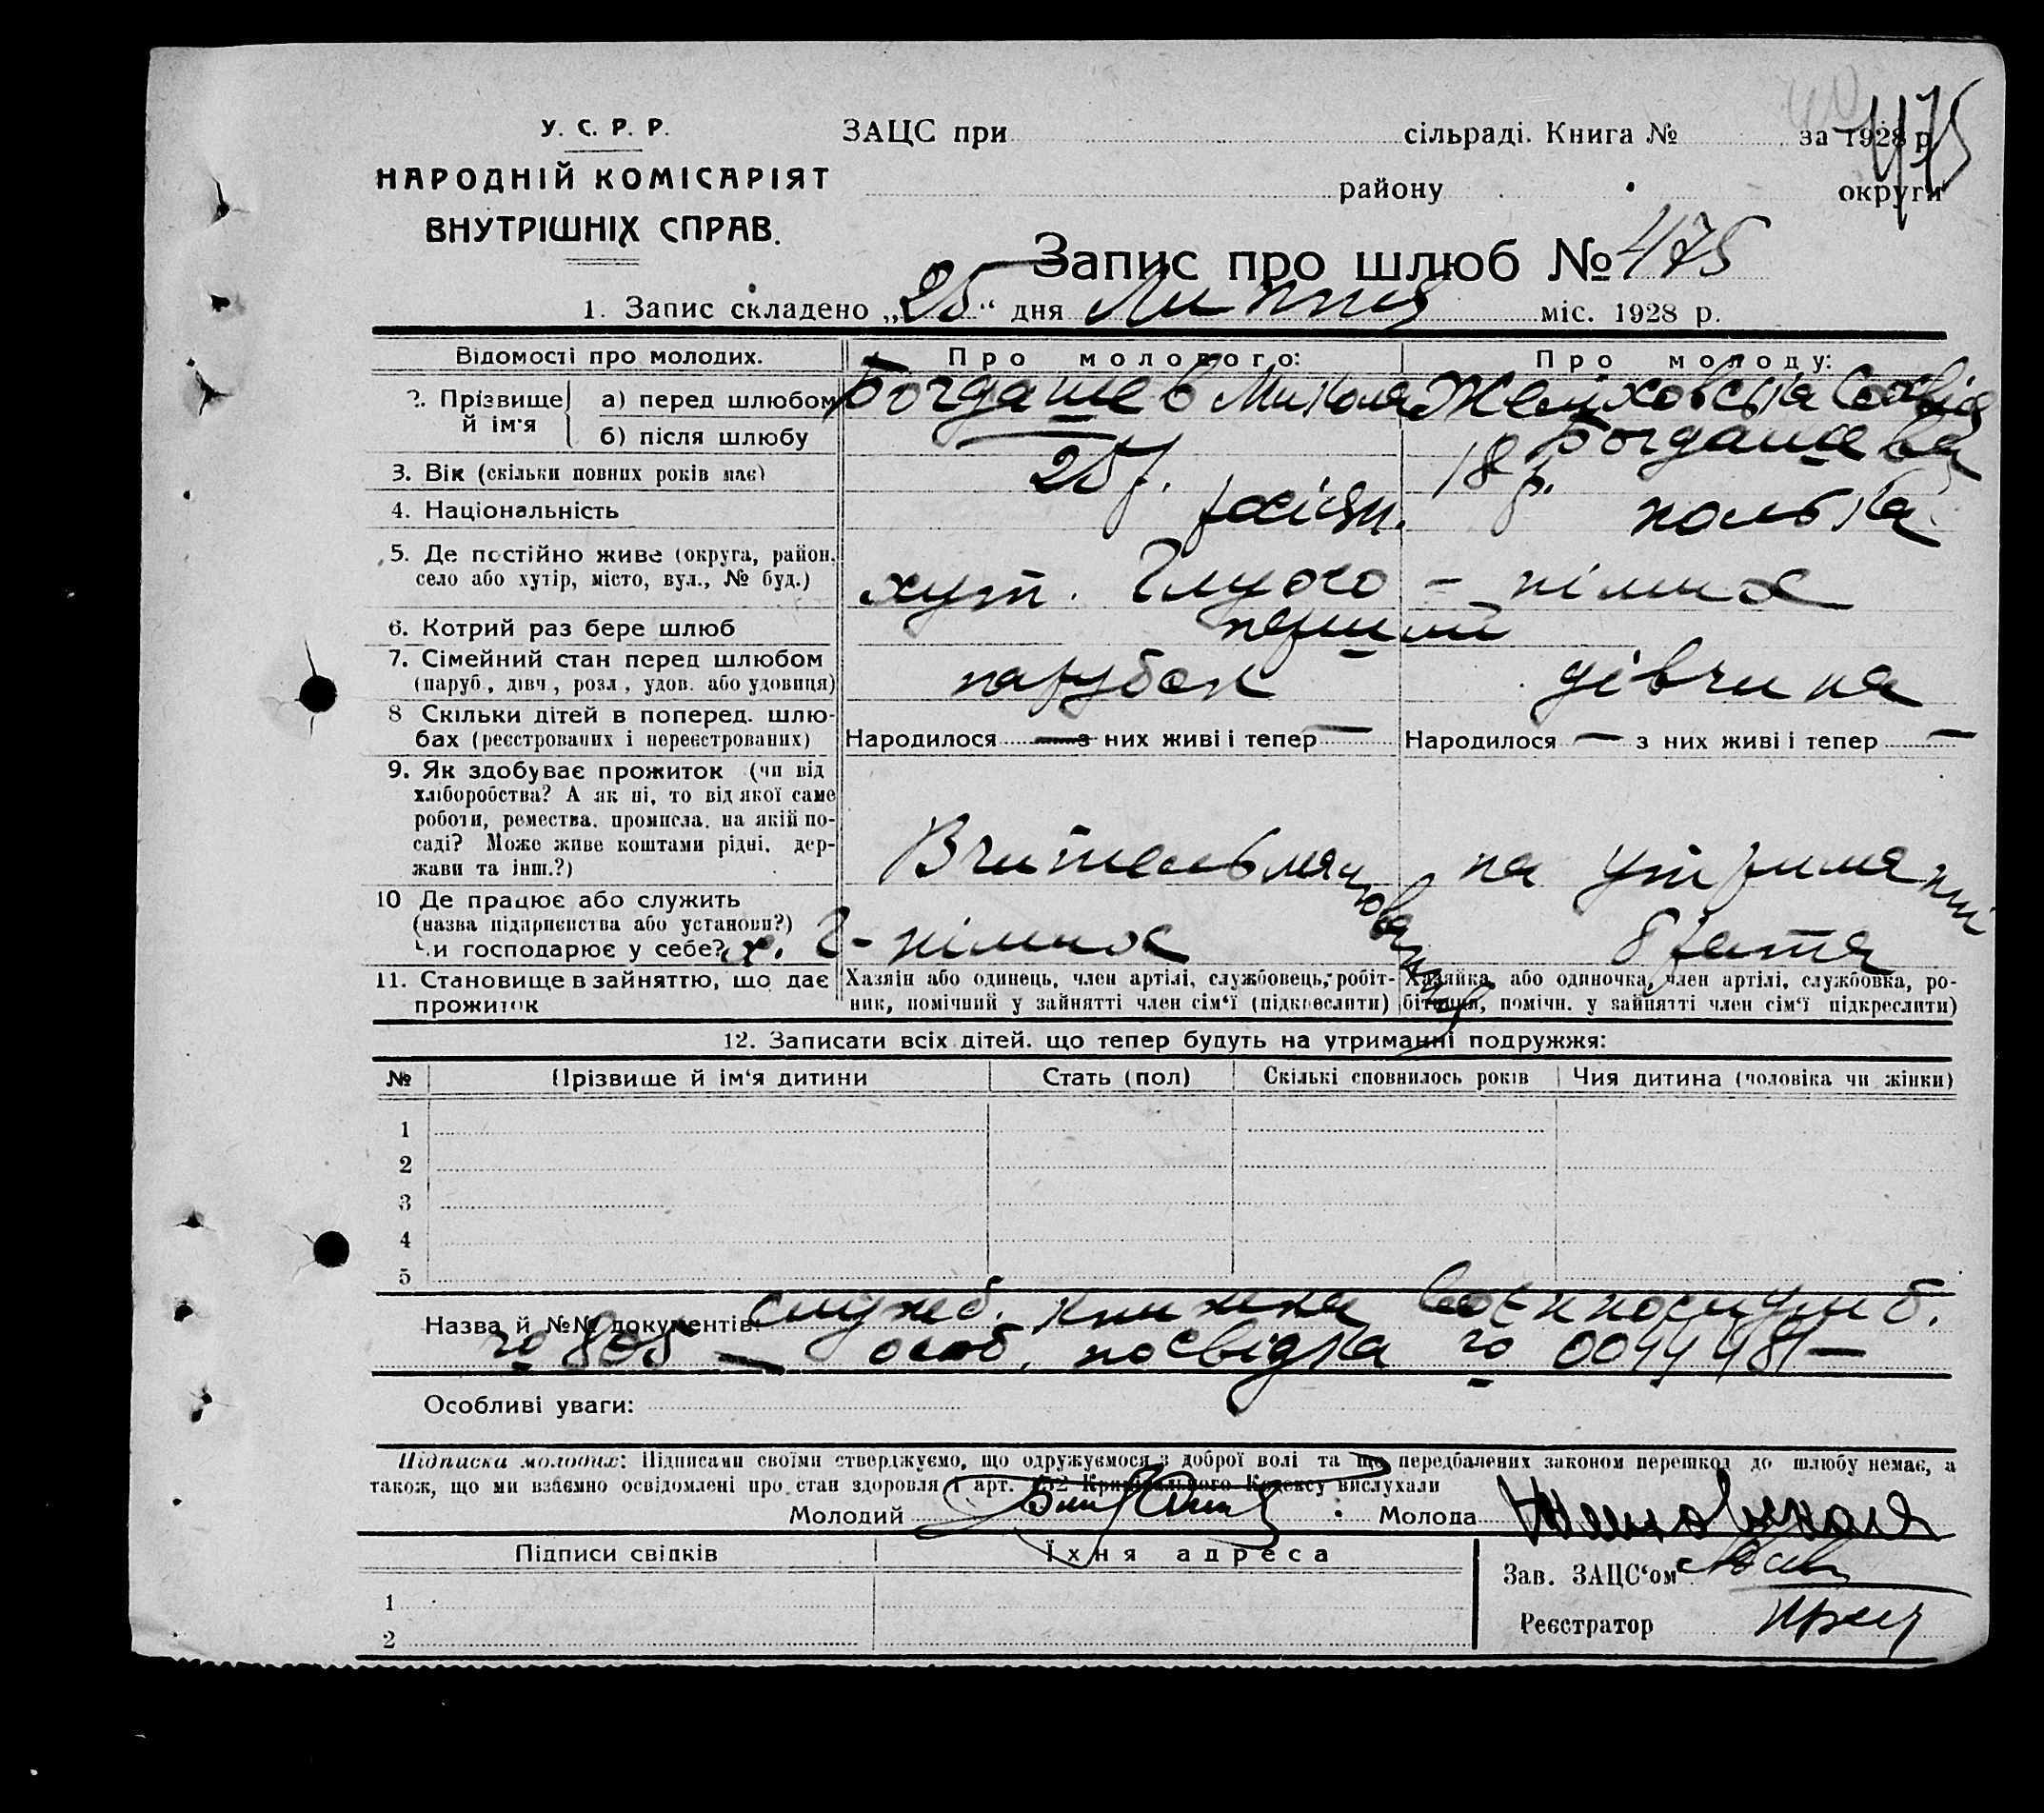 475
У. С. Р. Р.
НАРОДНІЙ КОМІСАРІЯТ
ВНУТРІШНІХ СПРАВ.
ЗАЦС при сільраді. Книга № за 1928 р.
району округи
Запис про шлюб № 475
1. Запис складено „25“ дня Липня міс. 1928 р.
Відомості про молодих. Про молодого: Про молоду:
2. Прізвище й ім'я а) перед шлюбом Богдашев Микола Желіховська Софія
б) після шлюбу Богдашева
3. Вік (скільки повних років має) 25 р. 18 р.
4. Національність росіян. полька
5. Де постійно живе (округа, район,
село або хутір, місто, вул., № буд.) хут.
6. Котрий раз бере шлюб перший
7. Сімейний стан перед шлюбом
(паруб., дівч., розл., удов. або удовиця) парубок дівчина
8 Скільки дітей в поперед. шлю-
бах (реєстрованих і нереєстрованих) Народилося — з них живі і тепер — Народилося — з них живі і тепер —
9. Як здобуває прожиток (чи від
хліборобства? А як ні, то від якої саме
роботи, ремества, промисла, на якій по-
саді? Може живе коштами рідні, дер-
жави та інш.?) на утриманні
10 Де працює або служить
(назва підприємства або установи?)
Чи господарює у себе? х. брата
11. Становище в зайняттю, що дає
прожиток
Хазяїн або одинець, член артілі, службовець, робіт-
ник, помічний у зайнятті член сім'ї (підкреслити)
Хазяйка або одиночка, член артілі, службовка, ро-
бітниця, помічн. у зайнятті член сім'ї підкреслити)
12. Записати всіх дітей. що тепер будуть на утриманні подружжя:
№ Прізвище й ім'я дитини Стать (пол) Скількі сповнилось років Чия дитина (чоловіка чи жінки)
1
2
3
4
5
Назва й №№ документів: служб. книжка
№ 805 — особ. посвідка №
Особливі уваги:
Підписка молодих: Підписами своїми стверджуємо, що одружуємося з доброї волі та що передбачених законом перешкод до шлюбу немає, а
також, що ми взаємно освідомлені про стан здоров'я і арт. 152 Кримінального Кодексу вислухали
Молодий Молода
Підписи свідків Їхня адреса
Зав. ЗАЦС'ом
1
Реєстратор
2